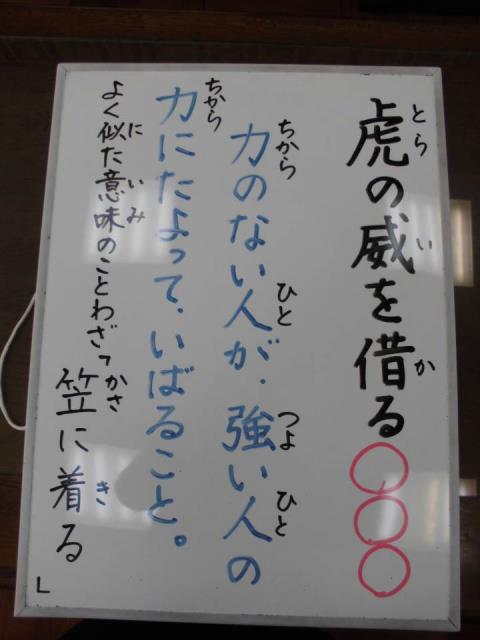 虎の威を借る○○○
とら い か
力のない人が、強い人の
ちから ひと つよ ひと
力にたよって、いばること。
ちから
よく似た意味のことわざ「笠に着る」
に いみ かさ き